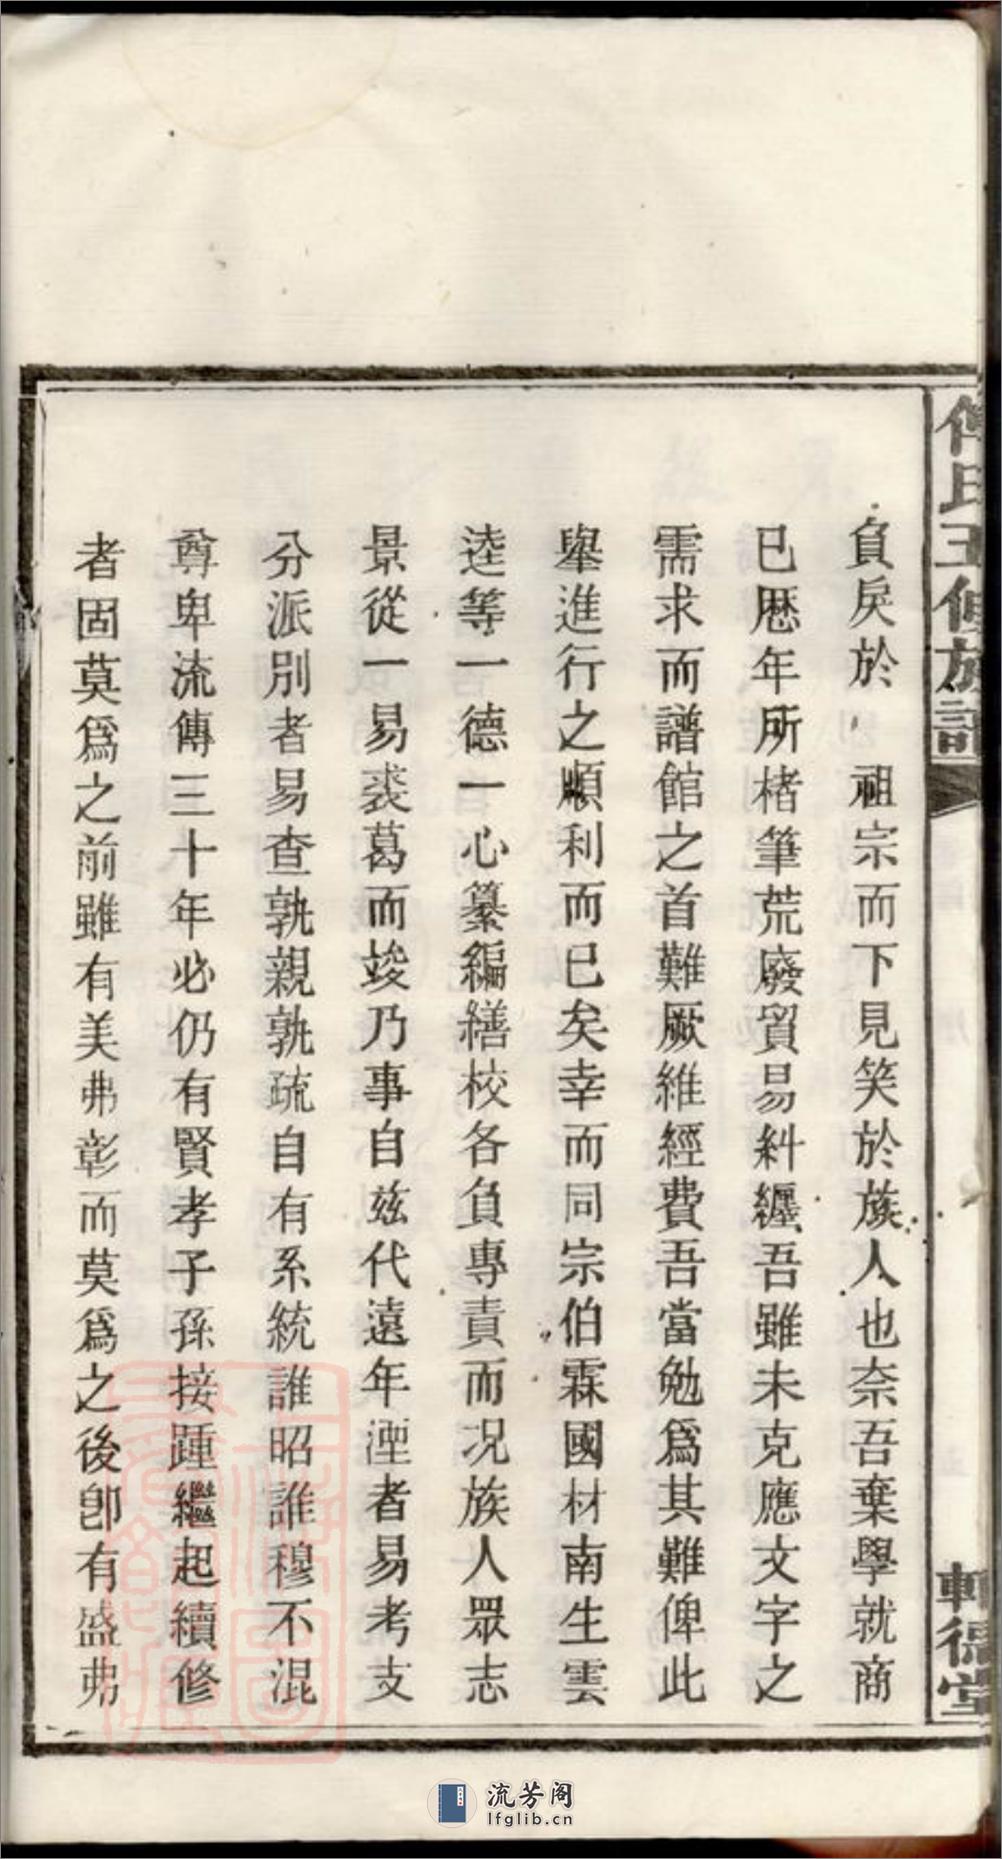 傅氏五修族譜
負戾於　祖宗而下見笑於族人也奈吾棄學就商
已歷年所楮筆荒廢貿易糾纏吾雖未克應文字之
需求而譜館之首難厥維經費吾當勉爲其難俾此
舉進行之順利而已矣幸而同宗伯霖國材南生雲
逵等一德一心纂編繕校各負專責而况族人眾志
景從一易裘葛而竣乃事自兹代遠年湮者易考支
分派別者易查孰親孰疏自有系統誰昭誰穆不混
尊卑流傳三十年必仍有賢孝子孫接踵繼起續修
者固莫爲之前雖有美弗彰而莫爲之後卽有盛弗
德堂
流芳阁
lfglib.cn